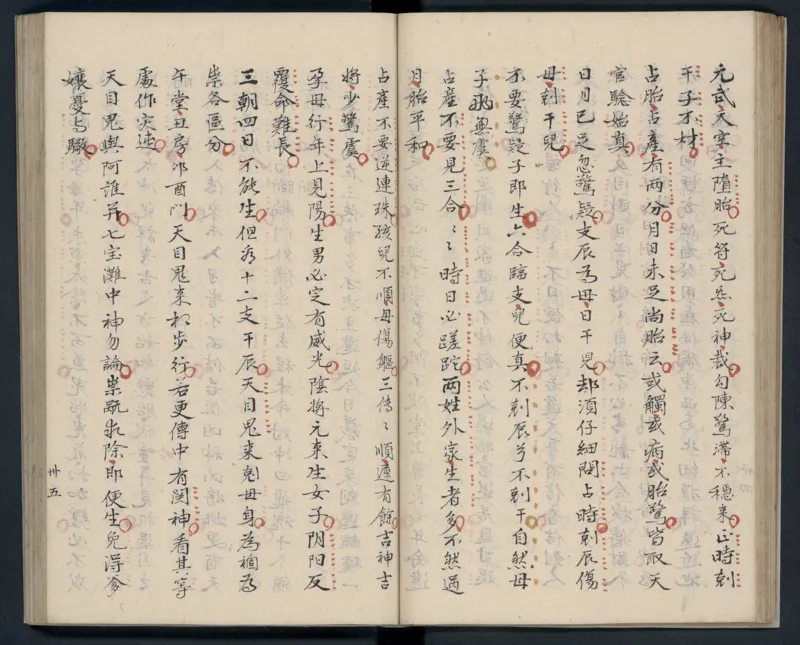 元武天空主隨胎死符死炁死神裁勾陳驚滯不穩來正時剋
干子不材
占胎占產有兩分月日未足尚胎云或觸或病或胎驚皆取天
官驗始真
日月已足忽驚疑支辰為母日干兒却須仔細閱占時剋辰傷
母剋干兒
不要驚疑子即生六合臨支兒便真不剋辰兮不剋干自然母
子兆無虞
占產不要見三合〻〻時日必蹉跎兩姓外家生者多不然過
月胎平和
占產不要逆連珠孩兒不順母傷軀三傳〻順連有餘吉神吉
將少驚虞
孕母行年上見陽生男必定有威光陰將元來生女子陰陽反
覆命難長
三朝四日不能生但看十二支干辰天目鬼來剋母身為禍為
祟各區分
午堂丑房卯酉門天目鬼來移步行若更傳中有関神看其等
處作灾迍
天目鬼與阿誰并七宝灘中神勿論祟既求除即便生免得爹
孃憂与瞋
卅五